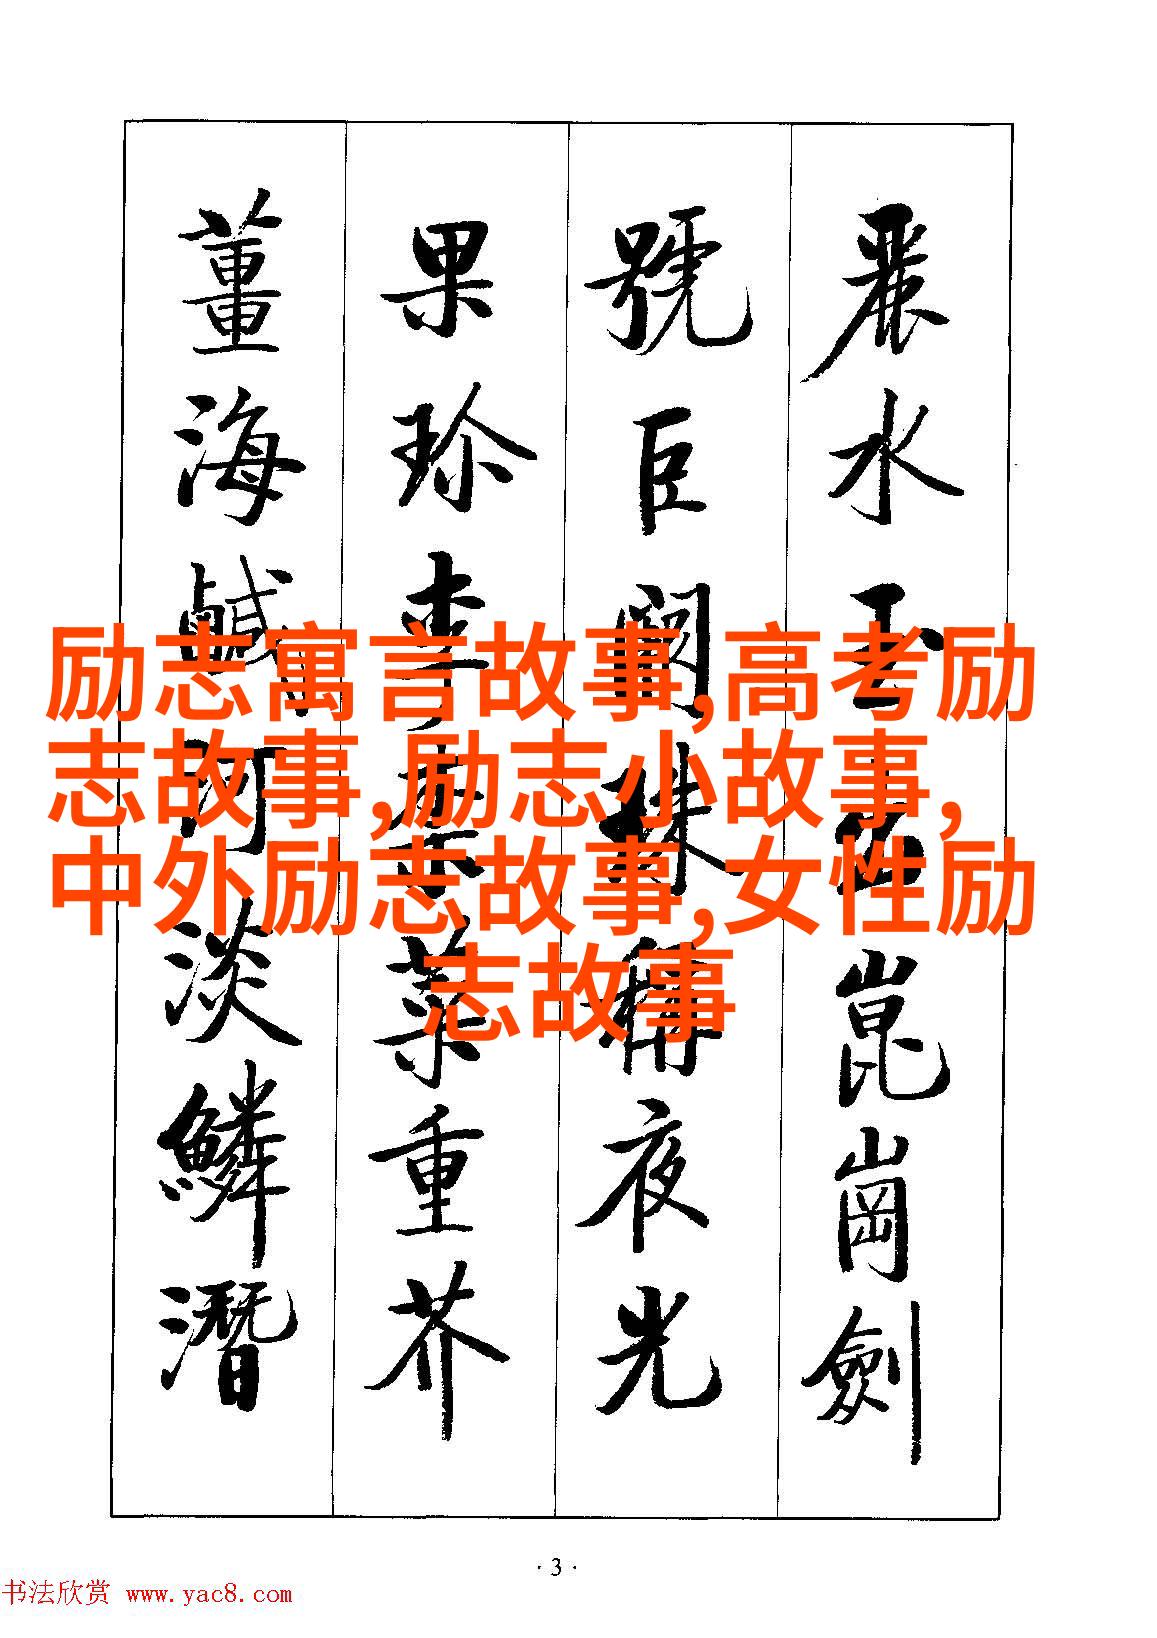 麗水玉出崑崗劍
號巨闕珠稱夜光
果珍李柰菜重芥
薑海鹹河淡鱗潛
励志寓言故事,高考励
志故事,励志小故事,
中外励志故事,女性励
志故事
·3·
书法欣赏 www.yac8.com